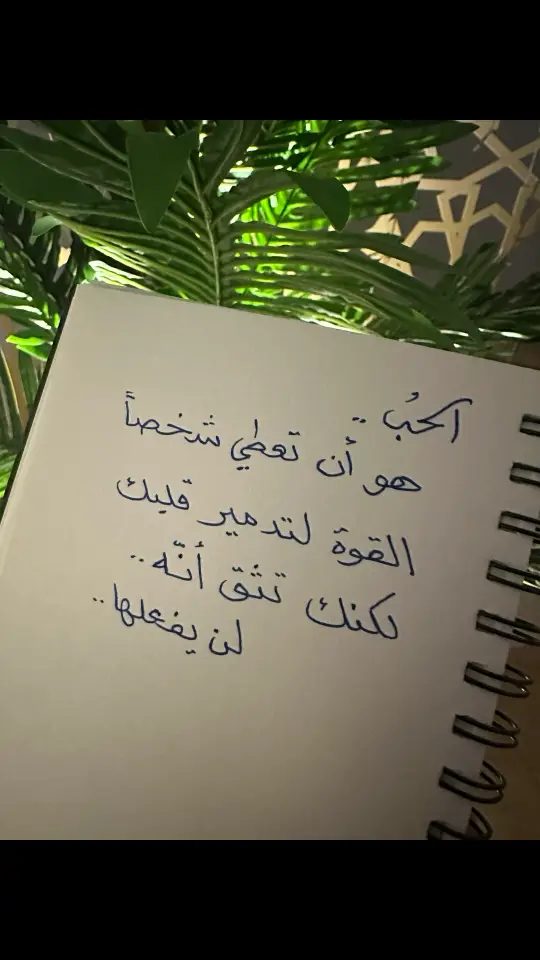 الحُب ..
هو أن تعطي شخصاً
القوة لتدمير قلبك
لكنك تثق أنّه ..
لن يفعلها ..